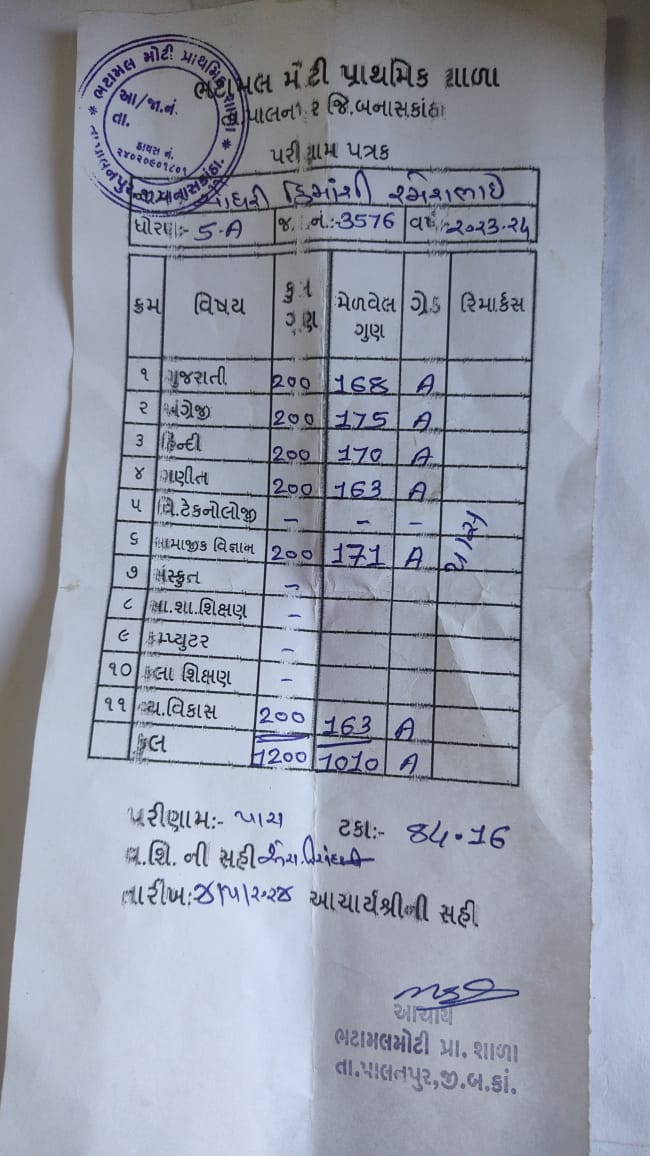 ભટામલ મોટી પ્રાથમિક શાળા
આ/જા.નં.
તા.
ડાયસ નં.
૨૪૦૨૦૯૦૧૮૦૧
ભટામલ મોટી પ્રાથમિક શાળા
પાલનપુર જિ.બનાસકાંઠા
પરીણામ પત્રક
ચૌધરી હિમાંશી રમેશભાઈ
ધોરણ:- 5-A જ. નં.:-3576 વર્ષ:-૨૦૨૩-૨૪
ક્રમ વિષય કુલ ગુણ મેળવેલ ગુણ ગ્રેડ રિમાર્કસ
૧ ગુજરાતી 200 168 A
૨ અંગ્રેજી 200 175 A
૩ હિન્દી 200 170 A
૪ ગણીત 200 163 A
૫ વિ.ટેકનોલોજી – – –
૬ સામાજીક વિજ્ઞાન 200 171 A પાસ
૭ સંસ્કુત –
૮ શા.શિક્ષણ –
૯ કમ્પ્યુટર –
૧૦ કલા શિક્ષણ –
૧૧ વ્ય.વિકાસ 200 163 A
કુલ 1200 1010 A
પરીણામ:- પાસ ટકા:- 84.16
વ.શિ. ની સહી
તારીખ: આચાર્યશ્રીની સહી
આચાર્ય
ભટામલમોટી પ્રા. શાળા
તા.પાલનપુર,જી.બ.કાં.